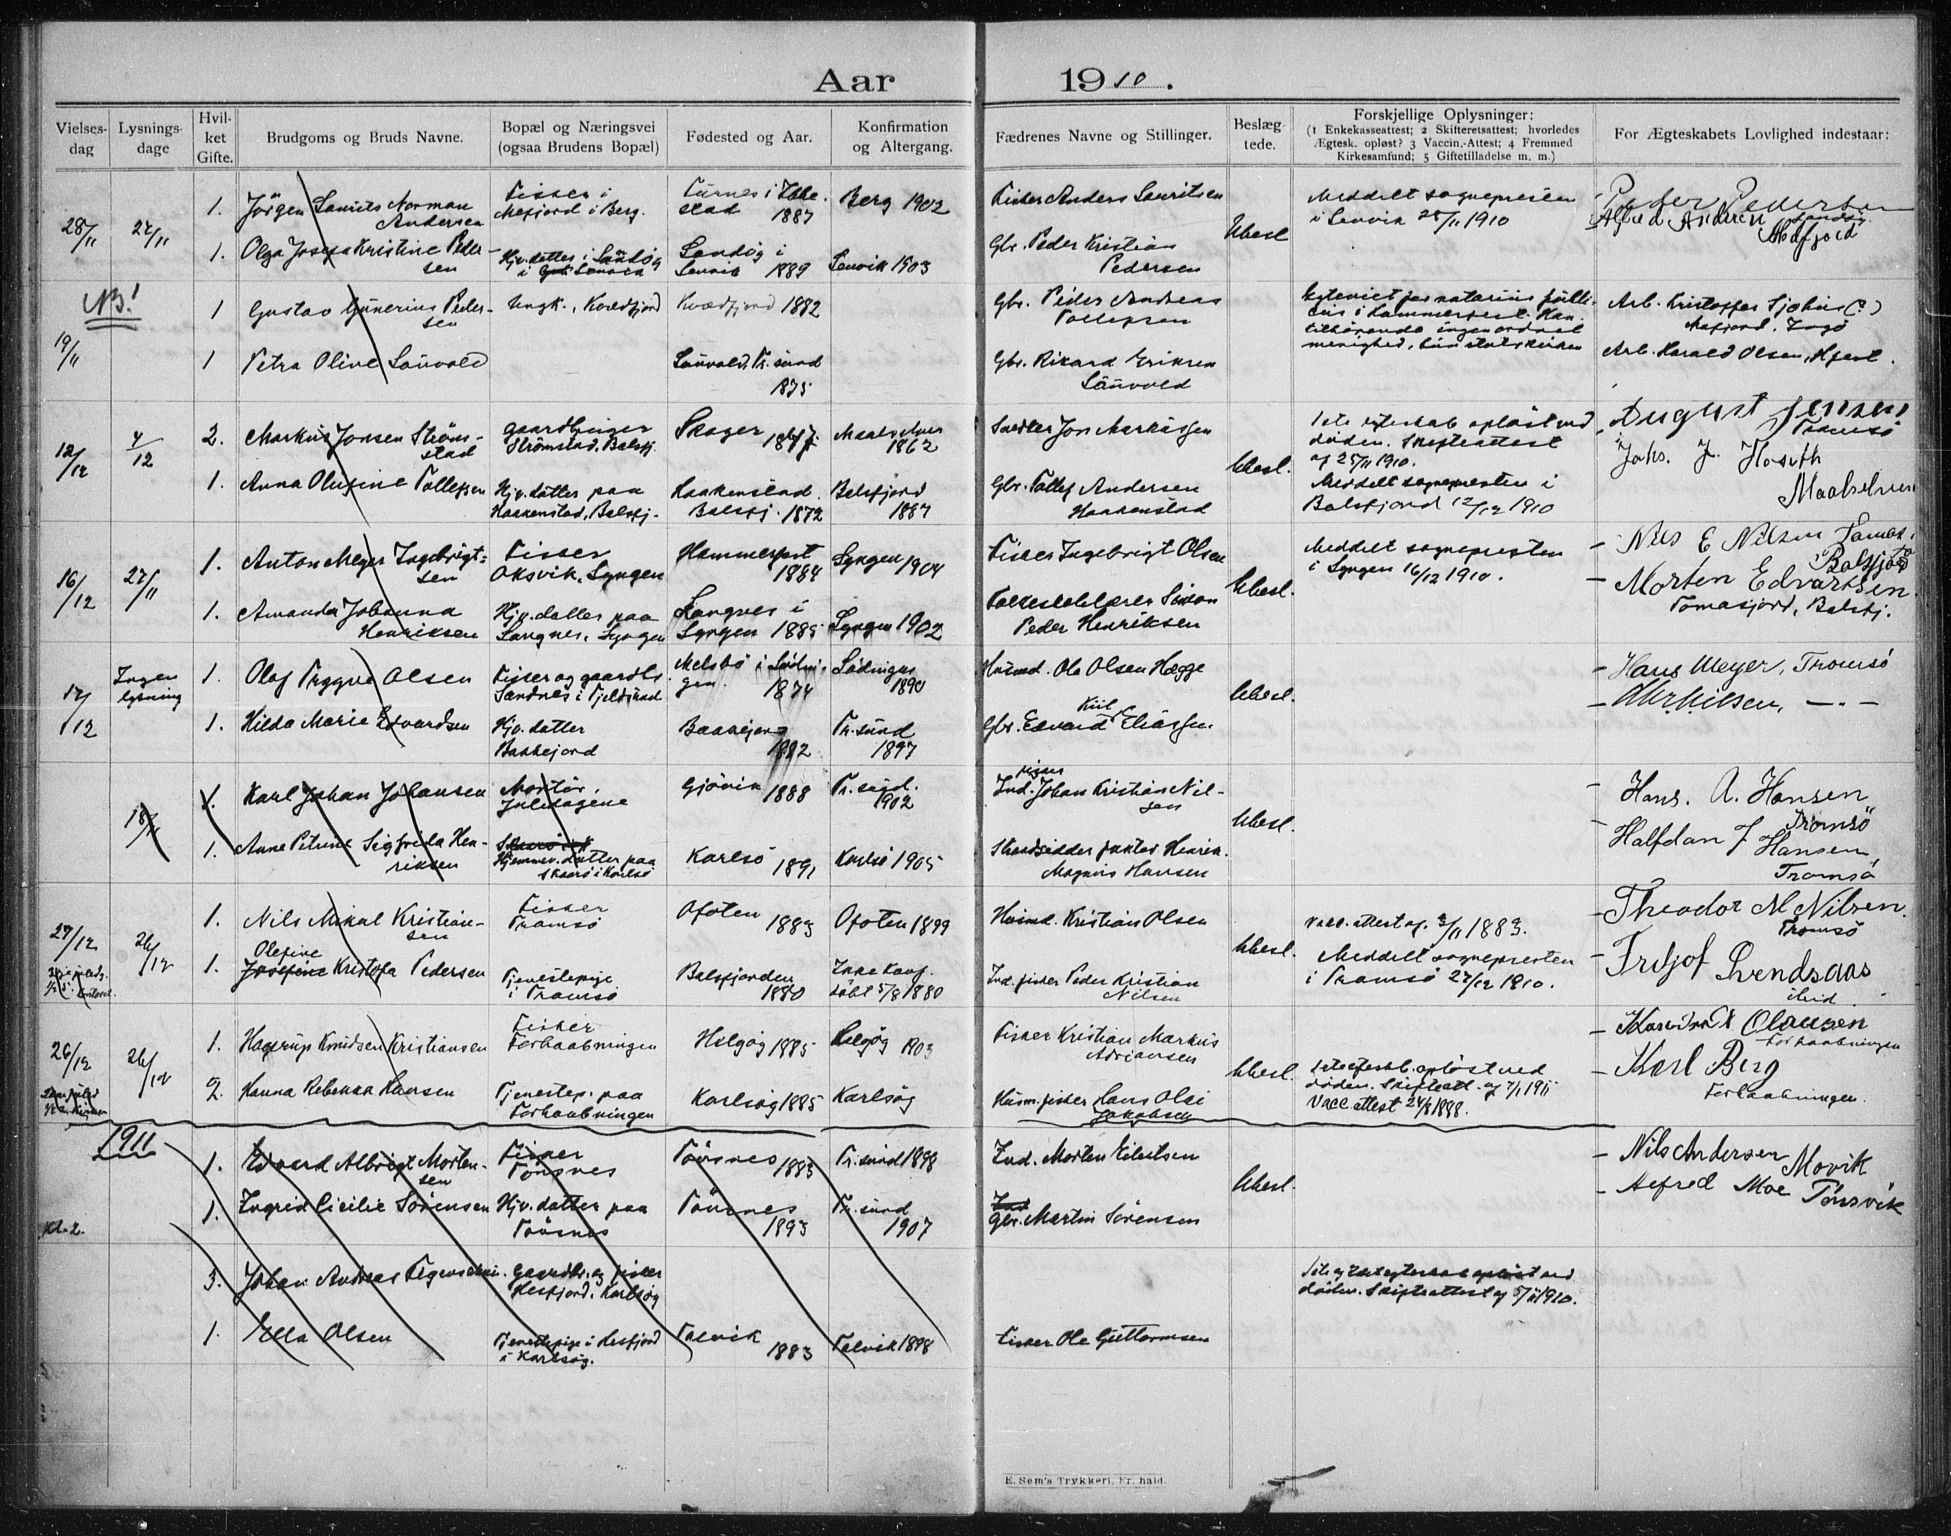 Aar 1910.
Vielses-dag
Lysnings-dage
Hvil-ket Gifte.
Brudgoms og Bruds Navne.
Bopæl og Næringsvei (ogsaa Brudens Bopæl)
Fødested og Aar.
Konfirmation og Altergang.
Fædrenes Navne og Stillinger.
Beslæg-tede.
Forskjellige Oplysninger:
(1 Enkekasseattest; 2 Skifteretsattest; hvorledes
Ægtesk. opløst? 3 Vaccin.-Attest; 4 Fremmed
Kirkesamfund; 5 Giftetilladelse m. m.)
For Ægteskabets Lovlighed indestaar:
28/11 27/11
1. Jörgen Laurits Norman Andersen
Fisker i Mefjord i Berg.
1887
Berg 1902
Fisker Anders Lauritsen
Ubesl
Meddelt sognepresten
i Lenvik 28/11 1910
Peder Pedersen
Alfred Andersen Mefjord
1. Olga Josefa Kristine Pedersen
Hjv. datter i Sandög
i Lenvik
Sandög i Lenvik 1889
Lenvik 1903
Gbr. Peder Kristian Pedersen
NB!
19/11
1 Gustav Gunerius Pedersen
Ungk., Kvædfjord
Kvædfjord 1882
Gbr. Peder Andreas Tollefsen
Arb. Kristoffer Sjøhus (?)
1 Petra Olive Laukvold
Tr. sund 1875
Gbr. Rikard Eriksen
Arb. Harald Olsen, Hjelv.
12/12 4/12
2. Markus Jonsen Strömstad
gaardbruger
Strömstad, Balsfj.
Maalselven 1862
Jon Markussen
Ubesl.
1ste egteskab oplöst ved
döden. Skifteattest
af 25/11 1910.
Meddelt sognepresten i
Balsfjord 12/12 1910
August Jensen
Tromsö
Johs. J. Hoseth
Maalselven
1. Anna Olufine Tollefsen
Hjv. datter paa
Haakenstad, Balsfj.
Haakenstad.
Balsfj. 1872
Balsfjord 1887
Gbr. Tollef Andersen
Haakenstad
16/12 27/11
1. Anton Meyer Ingebrigtsen
Fisker
Oksvik, Lyngen
Hammerfest 1884
Lyngen 1904
Fisker Ingebrigt Olsen
Ubesl.
Meddelt sognepresten
i Lyngen 16/12 1910.
Nils E Nilsen
Balsfjord
Morten Edvartsen
Tomasjord, Balsfj.
1. Amanda Johanna Henriksen
Hjv. datter paa
Langnes, Lyngen
Langnes i Lyngen 1885
Lyngen 1902
Peder Henriksen
17/12 Ingen lysning
1. Olaf Trygve Olsen
Fisker og gaardbr.
Sandnes i Fjeldstad
1874
Lödingen 1890
Husmd. Ole Olsen Hægge
Ubesl.
Hans Meyer, Tromsö
1. Hilda Marie Edvardsen
Hjv. datter
Bakkejord
Bakkejord 1882
Tr. sund 1897
Gbr. Edvard Kiil Eliassen.
18/11
1. Karl Johan Johansen
Gjövik 1888
Tr. sund. 1902
Ind. Johan Kristian Nilsen
Ubesl.
Hans. A. Hansen
Tromsö
Halfdan J Hansen,
Tromsö
1. Anne Petrine Sigfrida Henriksen
Hjemmev. datter paa
Skaarö i Karlsö
Karlsö 1891
Karlsö 1905
Magnus Hansen
27/12 26/12
1. Nils Mikal Kristiansen
Fisker
Tromsö
Ofoten 1883
Ofoten 1899
Husmd. Kristian Olsen
Ubesl.
Vacc. attest af. 3/11 1883.
Meddelt sognepresten
i Tromsö 27/12 1910.
Theodor M Nilsen.
Tromsö
Fritjof Svendsaas
ibid.
1. Olefine
Josefine Kristofa Pedersen
Tjenestepige
i Tromsö
Balsfjorden 1880
Ikke konf.
döbt 5/8 1880
Ind. fisker Peder Kristian Nilsen
26/12 26/12
1. Hagerup Knudsen Kristiansen
Fisker
Forhaabningen
Helgöy 1885
Helgöy 1903
Fisker Kristian Markus Adriansen
Ubesl.
1ste egtesk. oplöst ved
döden. Skifteatt. af 7/1 1911
Vacc attest 24/8 1888.
Olausen
Forhaabningen
Karl Berg
Forhaabningen.
2. Hanna Rebekka Hansen
Tjenestep. paa
Forhaabningen
Karlsöy 1885
Karlsöy
Husm. fisker Hans Olai Jakobsen
1911
1. Edvard Albrigt Mortensen
Fisker
Tönsnes
Tönsnes 1883
Tr. sund 1898
Ind. Morten Eilertsen
Ubesl.
Nils Andersen Movik
Alfred Moe Tönsvik
Kl. 2.
1. Ingrid Cicilie Sörensen
Hjv. datter paa
Tönsnes
Tönsnes 1893
Tr. sund 1907
Gbr. Martin Sörensen
3. Johan Andreas
Gaardbr. og fisker
Hesfjord, Karlsöy
1ste og 2det egteskab oplöst ved
döden. Skifteattest af 5/11 1910.
1. Ella Olsen
Tjenestepige i Hesfjord
i Karlsöy.
Talvik 1883
Talvik 1898
Fisker Ole Guttormsen
E. Sem's Trykkeri, Fr. hald.